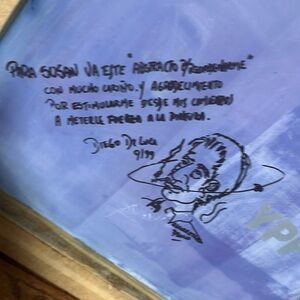 PARA SOSAN VA ESTE "ABSTRACTO
CON MUCHO CARIÑO. Y AGRADECIMIENTO
POR ESTIMULARME DESDE MIS COMIENZOS
A METERLE FUERZA A LA PINTURA.
DIEGO DE LUCA
9/99
YPF